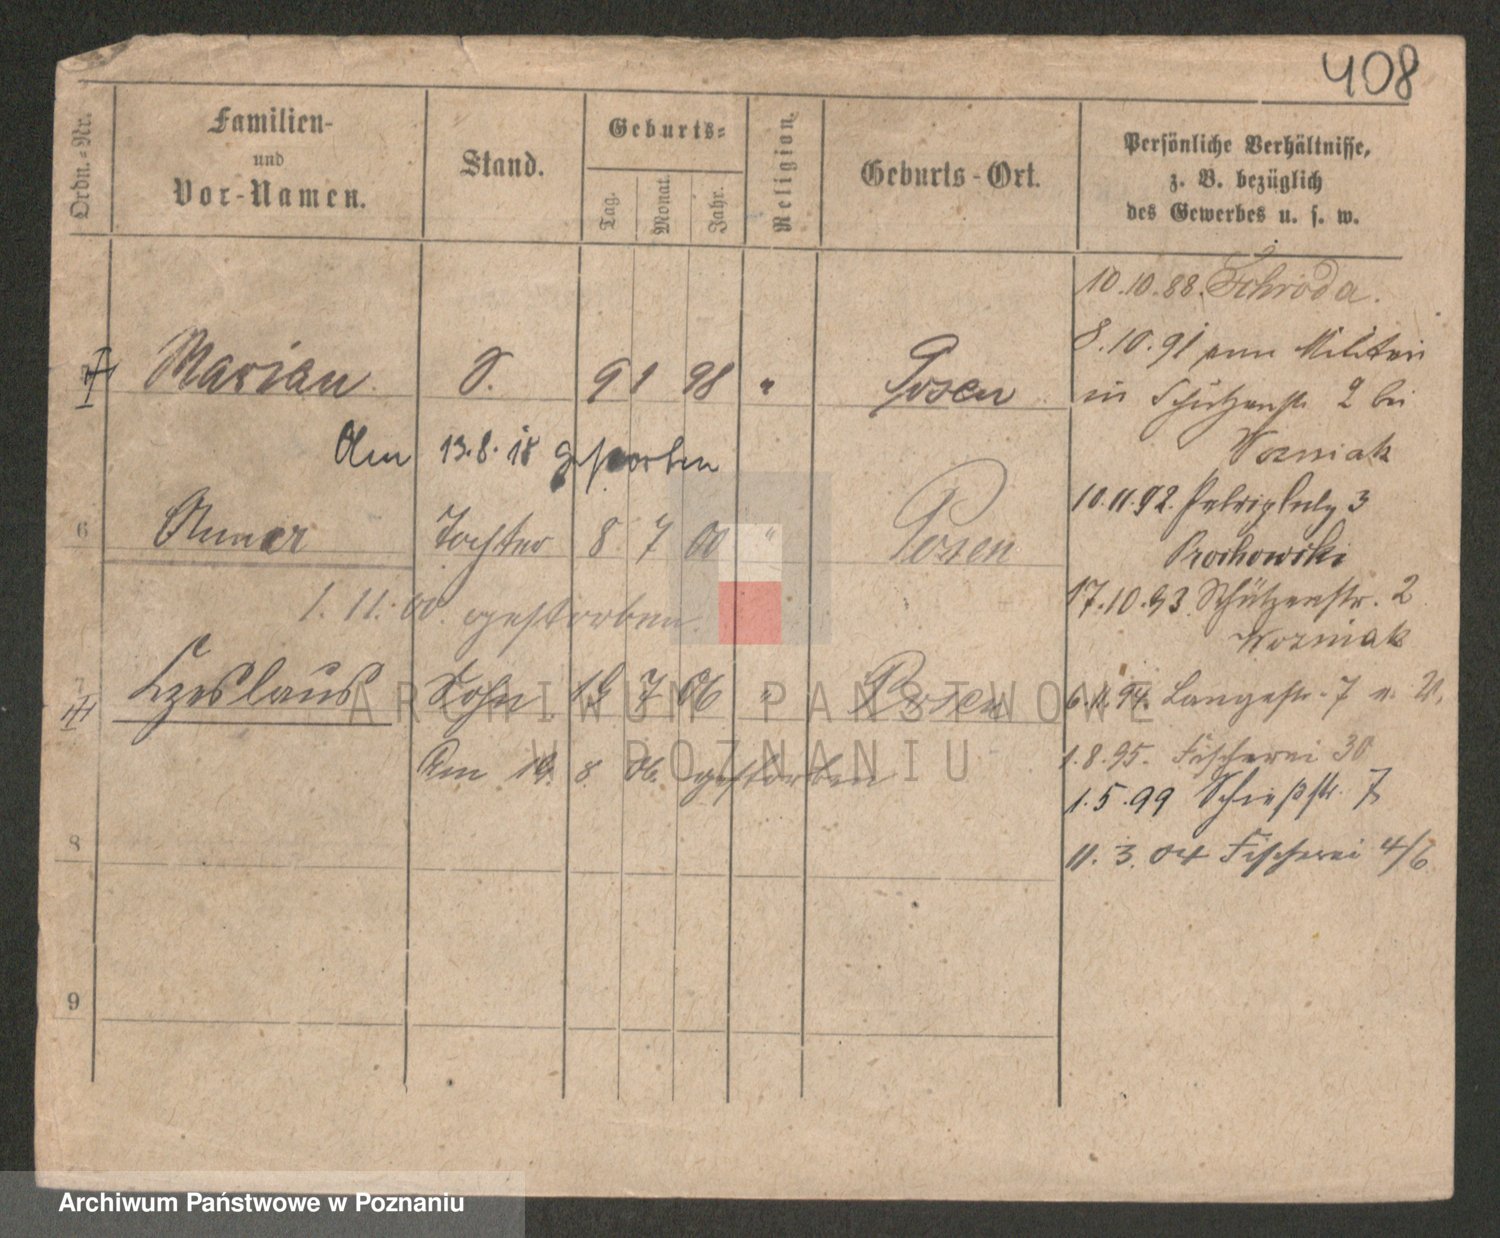 408
Ordn.-Nr.
Familien-
und
Vor-Namen.
Stand.
Geburts-
Tag.
Monat.
Jahr.
Religion.
Geburts-Ort.
Persönliche Verhältnisse,
z. B. bezüglich
des Gewerbes u. s. w.
10.10.88. Schroda.
8.10.91 zum Militair
in Schützenstr 2 bei
Wozniak
10.11.92. 3
Prochowski
17.10.93. Schützenstr. 2
Wozniak
6.11.94. Langestr. 7
1.8.95. Fischerei 30
1.5.99 Schießstr. 7
11.3.04 Fischerei 4/6
Marian S. 9 1 98 " Posen
Am 13.8.18 gestorben
6 Tochter 8 7 00 " Posen
1.11.00. gestorben
7 Czeslaus Sohn 19 7 06 " Posen
Am 8. 06. gestorben
8
9
ARCHIWUM PAŃSTWOWE
W POZNANIU
Archiwum Państwowe w Poznaniu